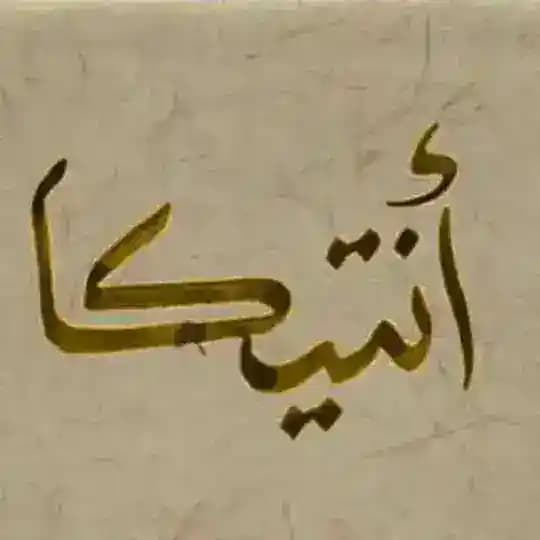 أنتيكا